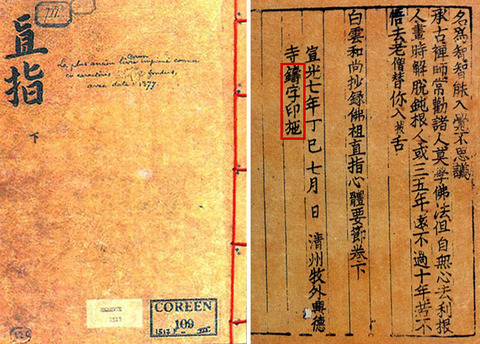 直指
下
Coréen
Le plus ancien livre imprimé connu
en caractères fondus,
avec date : 1377.
COREEN
109
名爲智智能入覺不思議
承古禪師常勸諸人莫學佛法但自無心去利根
人畫時解脫鈍根人或三五年遠不過十年若不
悟去老僧替你入拔舌
白雲和尚抄錄佛祖直指心體要節卷下
宣光七年丁巳七月 日 淸州牧外興德
寺鑄字印施